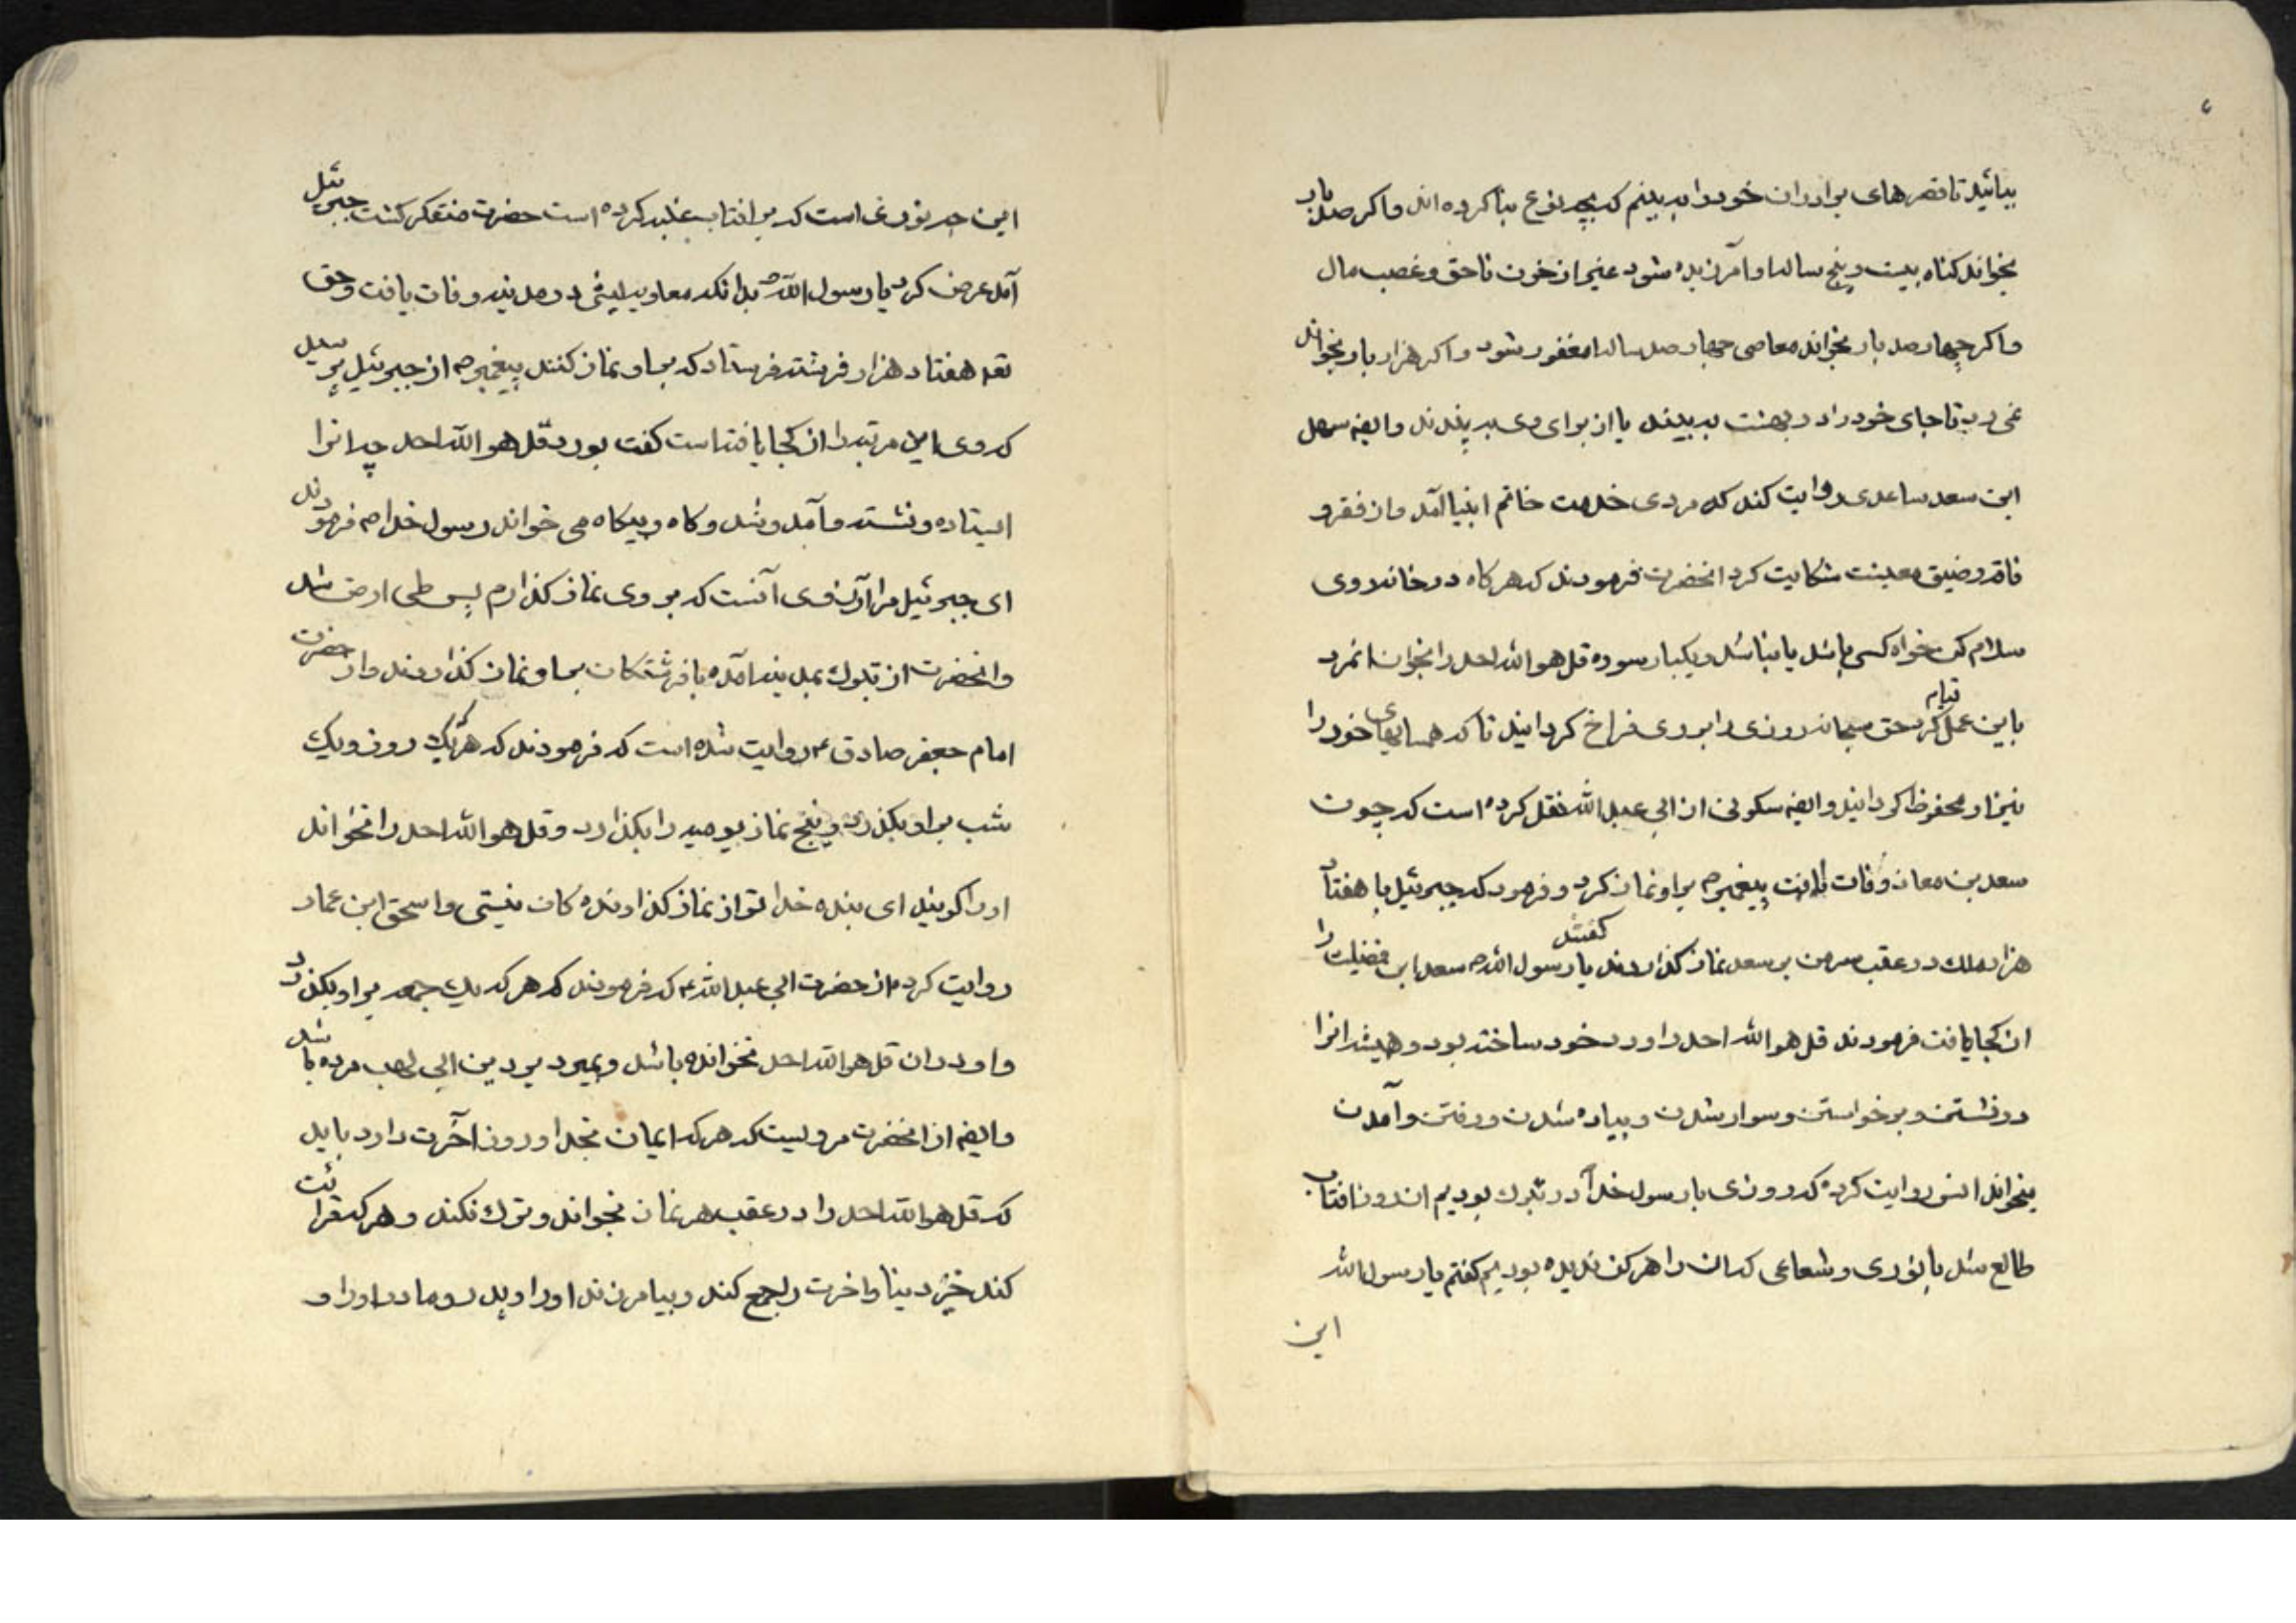 بیائید تا قصرهای برادران خود را به بینیم که بچه نوع بنا کرده اند و اکر صد بار
بخواند کناه بیست و پنج ساله او آمرزیده شود غیر از خون ناحق و غصب مال
و اکر چهار صد بار بخواند معاصی چهار صد ساله او مغفور شود و اکر هزار بار بخواند
نمی رد تا جای خود را در بهشت به بیند یا از برای وی به بینند و ایضه سهل
ابن سعد ساعدی روایت کند که مردی خدمت خاتم انبیا آمد و از فقر و
فاقه و ضیق معیشت شکایت کرد انحضرت فرمودند که هر کاه در خانه روی
سلام کن خواه کسی باشد یا نباشد و یکبار سوره قل هو الله احد را بخوان انمرد
باین عمل قیام کرد حق سبحانه روزی را بر وی فراخ کردانید تا که همسایهای خود را
نیز از و محفوظ کردانید و ایضه سکونی از ابی عبد الله نقل کرده است که چون
سعد بن معاذ وفات یافت پیغمبر ص بر او نماز کرد و فرمود که جبرئیل با هفتاد
هزار ملک در عقب من بر سعد نماز کذاردند کفتند یا رسول الله ص سعد این فضیلت را
از کجا یافت فرمودند قل هو الله احد را ورد خود ساخته بود و همیشه انرا
در نشستن و برخواستن و سوار شدن و پیاده شدن و رفتن و آمدن
میخواند انس روایت کرده که روزی با رسول خدا در تبوک بودیم انروز افتاب
طالع شد با نوری و شعاعی که ان را هرکز ندیده بودیم کفتم یا رسول الله
این
این چه نوری است که بر افتاب غلبه کرده است حضرت متفکر کشت جبرئیل
آمد عرض کرد یا رسول الله ص بدانکه معاویه لیثی در مدینه وفات یافت و حق
تعه هفتاد هزار فرشته فرستاد که بر او نماز کنند پیغمبر ص از جبرئیل پرسید
که وی این مرتبه را از کجا یافته است کفت بورد قل هو الله احد چه انرا
ایستاده و نشسته و آمد و شد و کاه و بیکاه می خواند رسول خدا ص فرمودند
ای جبرئیل مرا آرزوی آنست که بر وی نماز کذارم پس طی ارض شد
و انحضرت از تبوک بمدینه آمده با فرشتکان بر او نماز کذاردند و از حضرت
امام جعفر صادق ع روایت شده است که فرمودند که هر که یک روز و یک
شب بر او بکذرد و پنج نماز یومیه را بکذارد و قل هو الله احد را نخواند
او را کویند ای بنده خدا تو از نماز کذارنده کان نیستی و اسحق ابن عمار
روایت کرده از حضرت ابی عبد الله ع که فرمودند که هر که یک جمعه بر او بکذرد
و او در ان قل هو الله احد نخوانده باشد و بمیرد بر دین ابی لهب مرده باشد
و ایضه از انحضرت مرویست که هر که ایمان بخدا و روز آخرت دارد باید
که قل هو الله احد را در عقب هر نماز بخواند و ترک نکند و هر که قرائت
کند خیر دنیا و اخرت را جمع کند و بیامرزند او را و پدر و مادر او را و